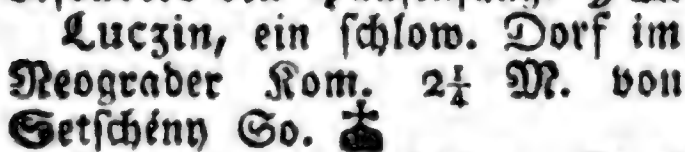 Luczin, ein ſchlow. Dorf im
Neograder Kom. 2¼ M. von
Setſchény So.